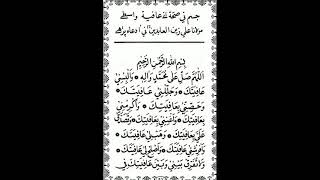 جسم ني صحة ني عافية واسطے
مولانا علي زين العابدين ني ا دعاء پڑھے
بِسْمِ اللهِ الرَّحْمٰنِ الرَّحِيْمِ
اَللّٰهُمَّ صَلِّ عَلىٰ مُحَمَّدٍ وَاٰلِهِ * وَاَلْبِسْنِيْ
عَافِيَتَكَ * وَجَلِّلْنِيْ عَافِيَتَكَ *
وَحَصِّنِّيْ بِعَافِيَتِكَ * وَاَكْرِمْنِيْ
بِعَافِيَتِكَ * وَاَغْنِنِيْ بِعَافِيَتِكَ * وَتَصَدَّقْ
عَلَيَّ بِعَافِيَتِكَ * وَهَبْ لِيْ عَافِيَتَكَ *
وَاَفْرِشْنِيْ عَافِيَتَكَ * وَاَصْلِحْ لِيْ عَافِيَتَكَ *
وَلَا تُفَرِّقْ بَيْنِيْ وَبَيْنَ عَافِيَتِكَ فِي